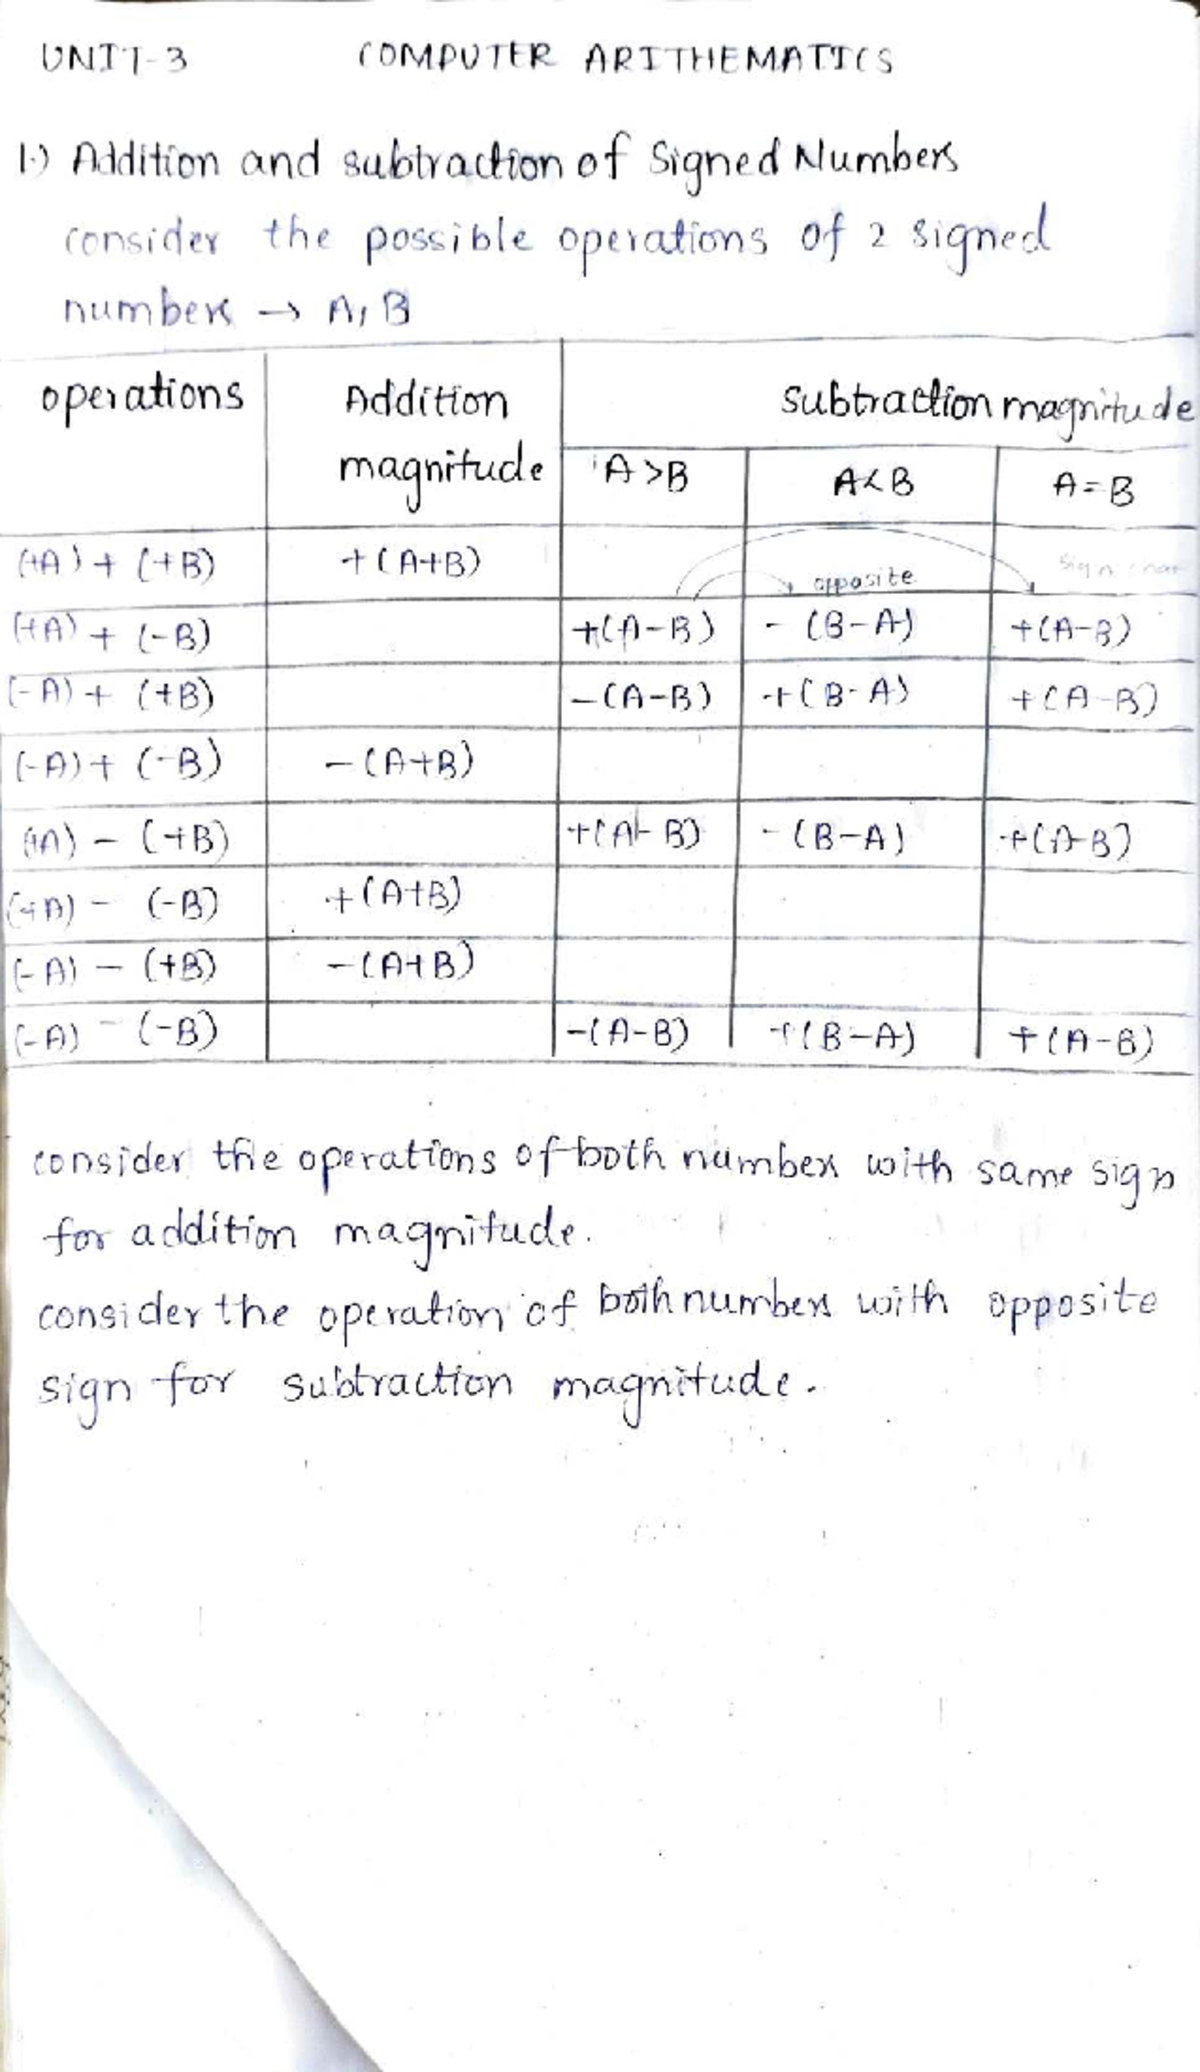 UNIT-3 COMPUTER ARITHEMATICS
1.) Addition and subtraction of Signed Numbers
consider the possible operations of 2 signed
numbers → A, B
operations Addition magnitude subtraction magnitude
A>B A<B A=B
(+A) + (+B) +(A+B)
opposite sign
(+A) + (-B) +(A-B) -(B-A) +(A-B)
(-A) + (+B) -(A-B) +(B-A) +(A-B)
(-A) + (-B) -(A+B)
(+A) - (+B) +(A-B) -(B-A) +(A-B)
(+A) - (-B) +(A+B)
(-A) - (+B) -(A+B)
(-A) - (-B) -(A-B) +(B-A) +(A-B)
consider the operations of both numbers with same sign
for addition magnitude.
consider the operation of both numbers with opposite
sign for subtraction magnitude.